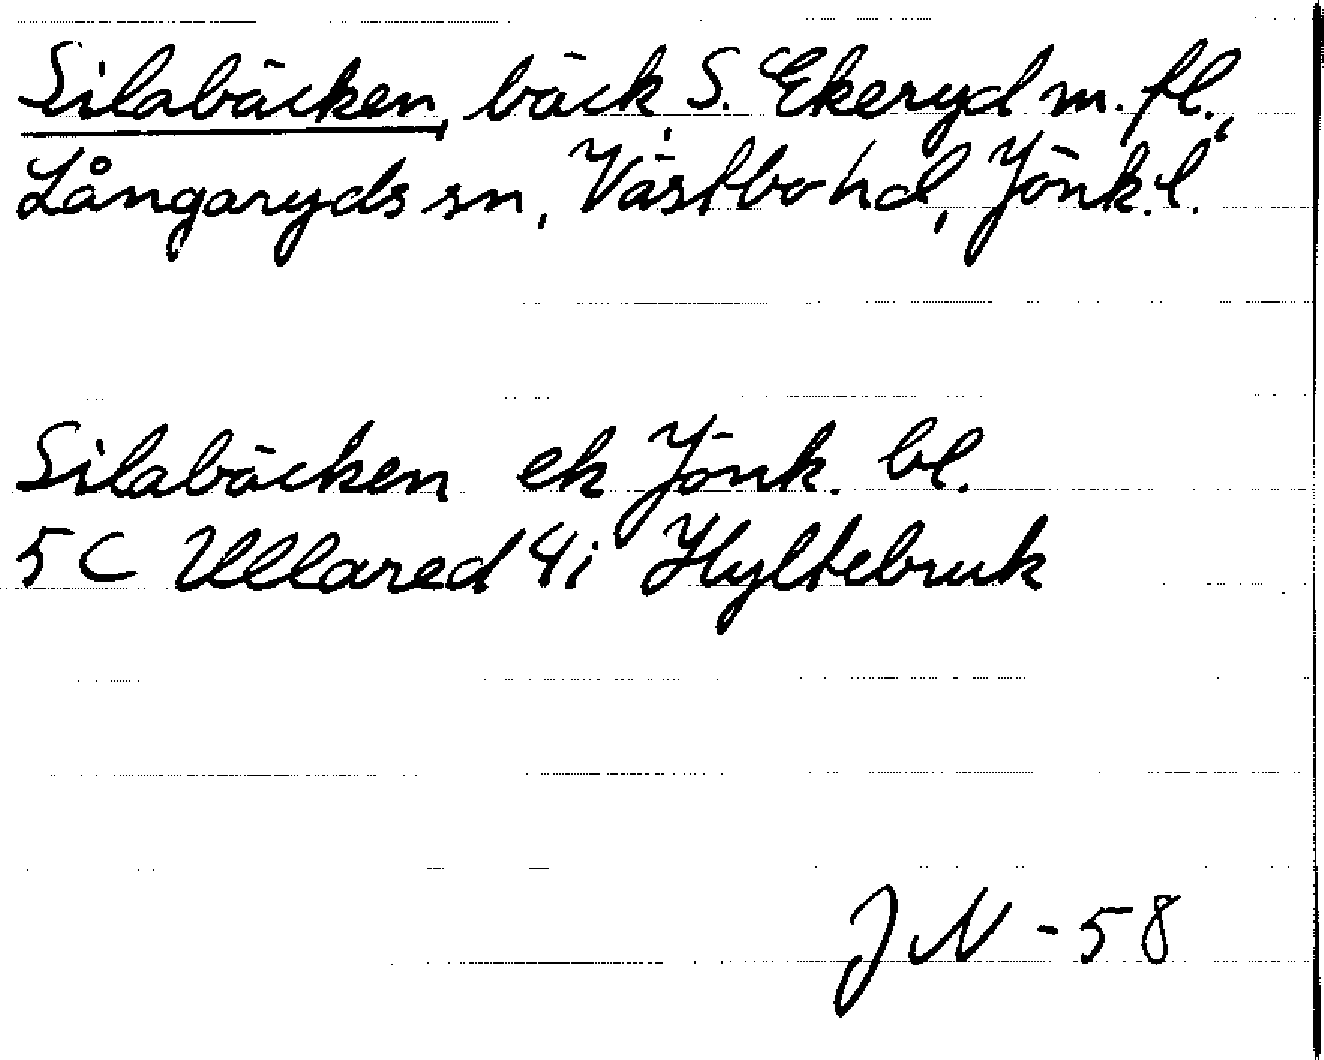 Silabäcken, bäck, S. Ekeryd m. fl.,
Långaryds sn, Västbo hd, Jönk. l.
Silabäcken ek Jönk. bl.
5 C Ullared 4i Hyltebruk
JN - 58